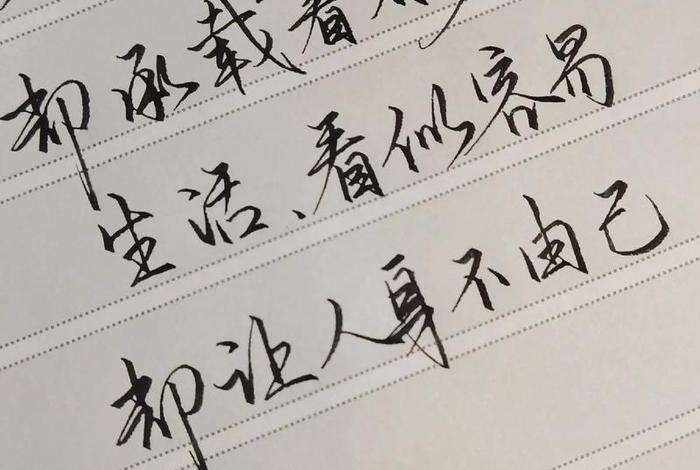 都承载着
生活、看似容易
都让人身不由己